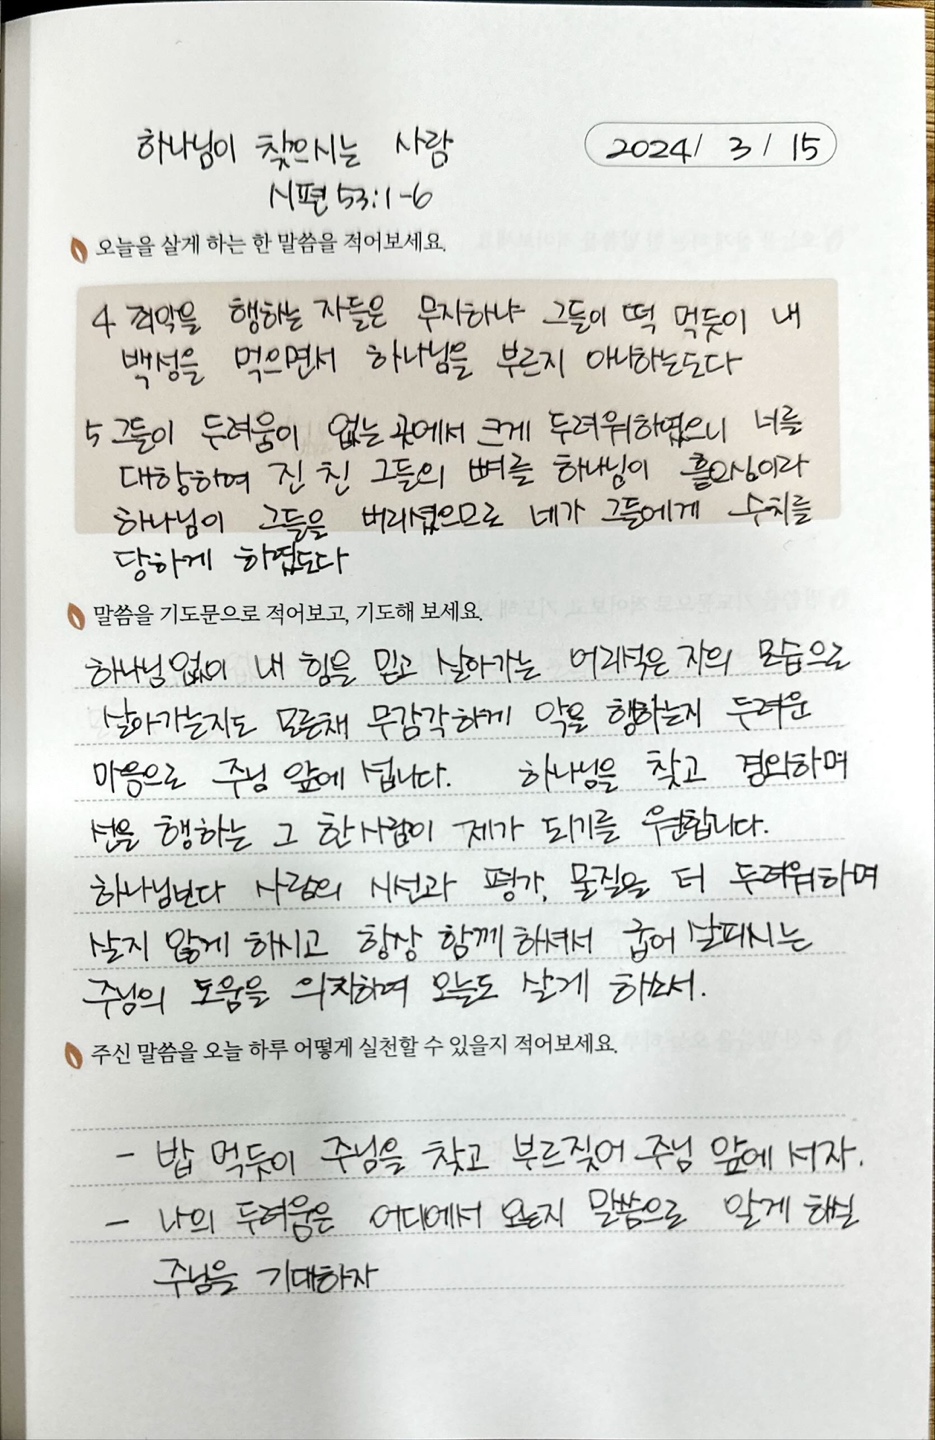 하나님이 찾으시는 사람
2024/ 3 / 15
시편 53:1-6
오늘을 살게 하는 한 말씀을 적어보세요.
4 죄악을 행하는 자들은 무지하냐 그들이 떡 먹듯이 내
백성을 먹으면서 하나님을 부르지 아니하는도다
5 그들이 두려움이 없는 곳에서 크게 두려워하였으니 너를
대항하여 진 친 그들의 뼈를 하나님이 흩으심이라
하나님이 그들을 버리셨으므로 네가 그들에게 수치를
당하게 하였도다
말씀을 기도문으로 적어보고, 기도해 보세요.
하나님 없이 내 힘을 믿고 살아가는 어리석은 자의 모습으로
살아가는지도 모른채 무감각하게 악을 행하는지 두려운
마음으로 주님 앞에 섭니다. 하나님을 찾고 경외하며
선을 행하는 그 한사람이 제가 되기를 원합니다.
하나님보다 사람의 시선과 평가, 물질을 더 두려워하며
살지 않게 하시고 항상 함께 하셔서 굽어 살피시는
주님의 도움을 의지하며 오늘도 살게 하소서.
주신 말씀을 오늘 하루 어떻게 실천할 수 있을지 적어보세요.
- 밥 먹듯이 주님을 찾고 부르짖어 주님 앞에 서자.
- 나의 두려움은 어디에서 오는지 말씀으로 알게 하실
주님을 기대하자